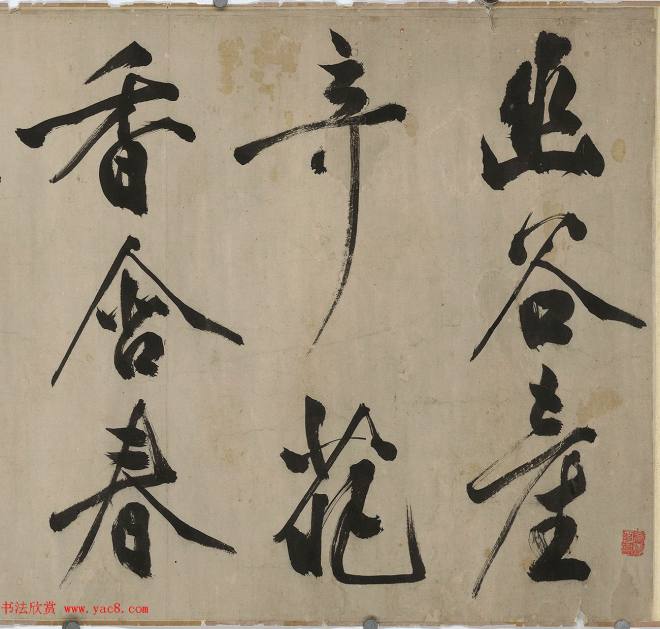 幽谷產
奇葩
香含春
书法欣赏 www.yac8.com